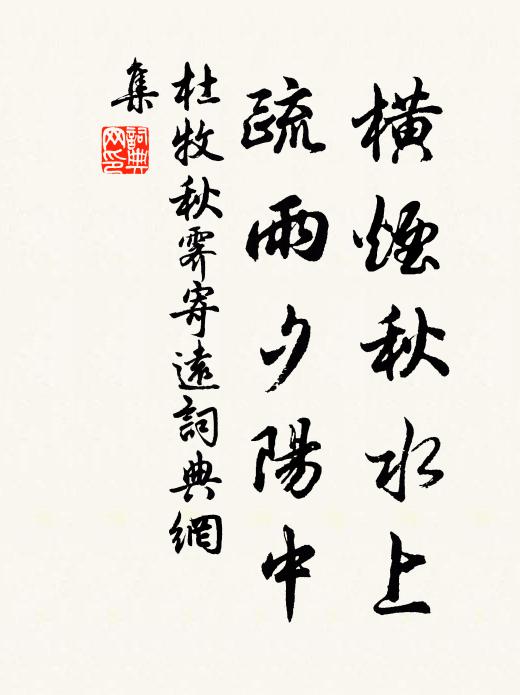 橫煙秋水上
疏雨夕陽中
杜牧秋霽寄遠詞典網
集
詞典網印